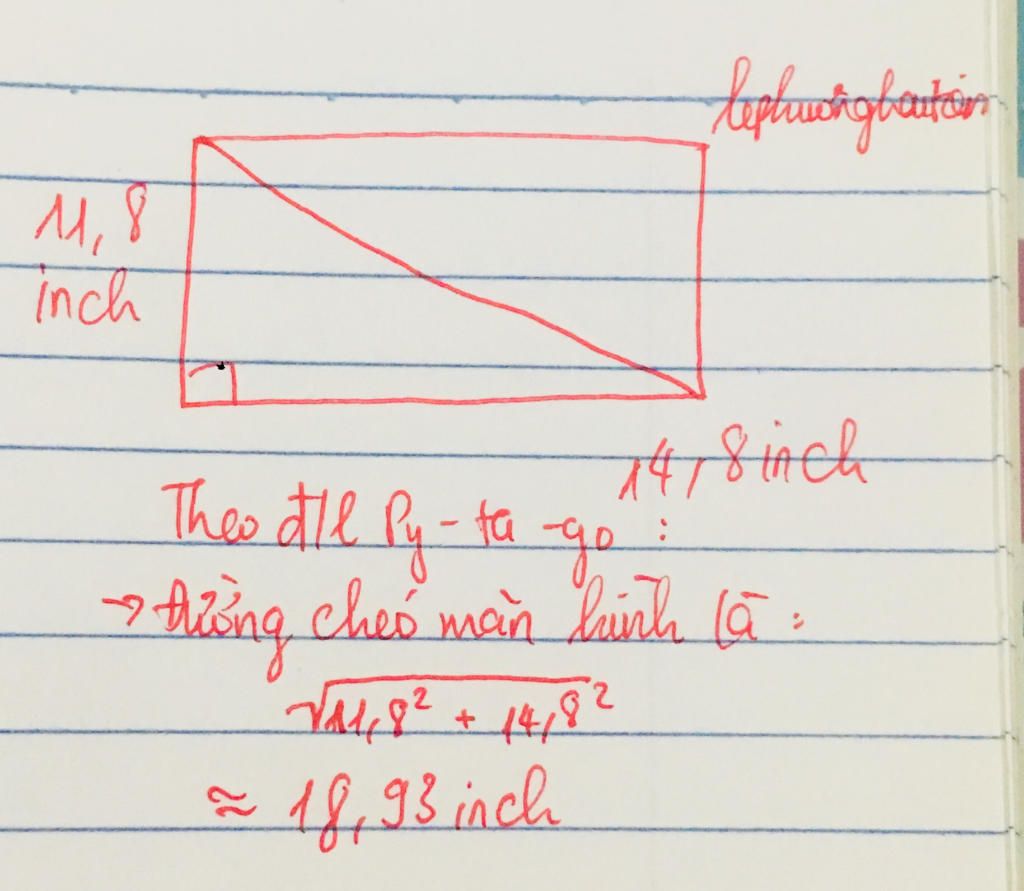 lephuonghoutien
11,8
inch
14,8 inch
Theo đ/l Py-ta-go :
→ đường chéo màn hình là :
√11,8² + 14,8²
≈ 18,93 inch